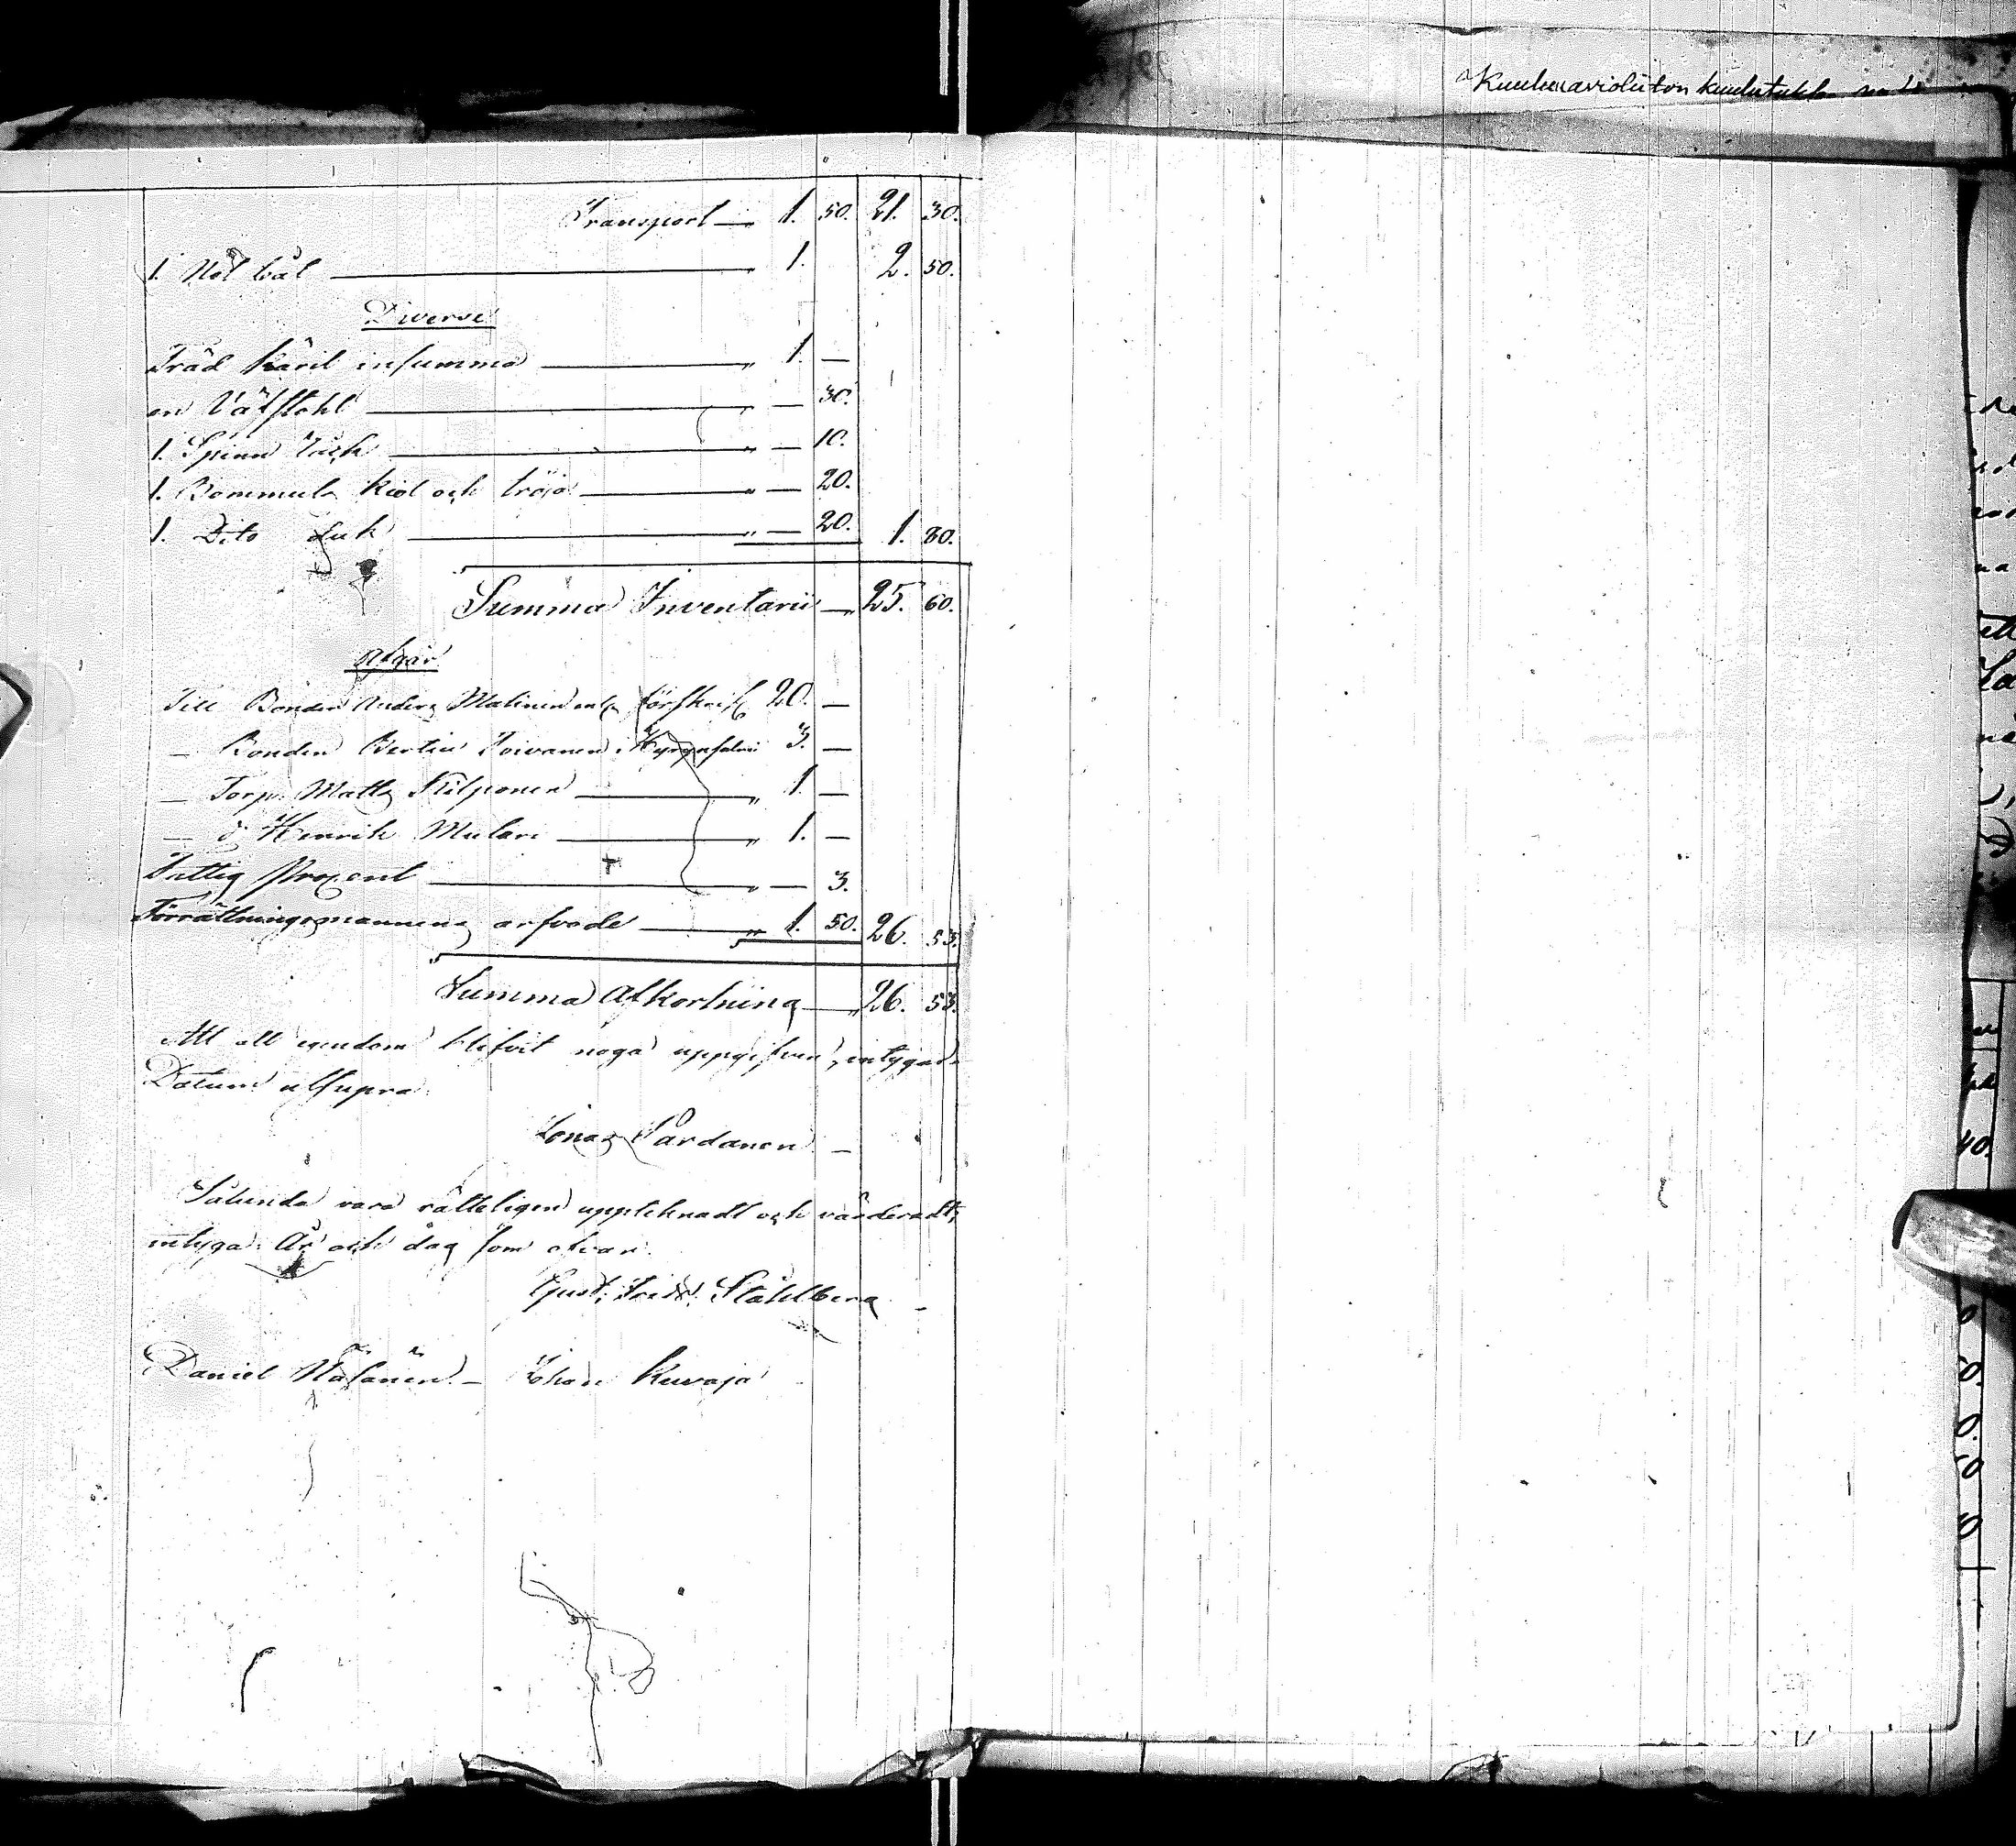 Kuuluu avioliiton kuulutukse
Transport — 1. 50. 21. 30.
1. Nöt 1. 2. 50.
Diverse
Träd Käril insumma — " 1. —
en Väfstohl — " — 30.
1. Spinn råck — " — 10.
1. Bommuls kiol och tröja — " — 20.
1. Dito duk — " — 20. 1. 80.
Summa Inventarii — 25. 60.
Afgår
Till Bonden Anders Malinen förskrif 20. —
— Bonden Bertin Toivanen i Hyrynsalmi 3. —
— Torp. Matts Kilponen — " 1. —
— d:o Henrik Mulari — " 1. —
Fattig Procent — " — 3.
Förrättningsmannens arfvode — " 1. 50. 26. 53.
Summa Afkortning — 26. 53.
Att all egendom blifvit noga uppgifven, intygar.
Datum utsupra
Jonas Pardanen —
Sålunda vara rätteligen uppteknadt och värderadt,
intyga. År och dag som ofvan.
Gust. Fredr. Ståhlberg —
Daniel Väsänen. — Johan Kuvaja